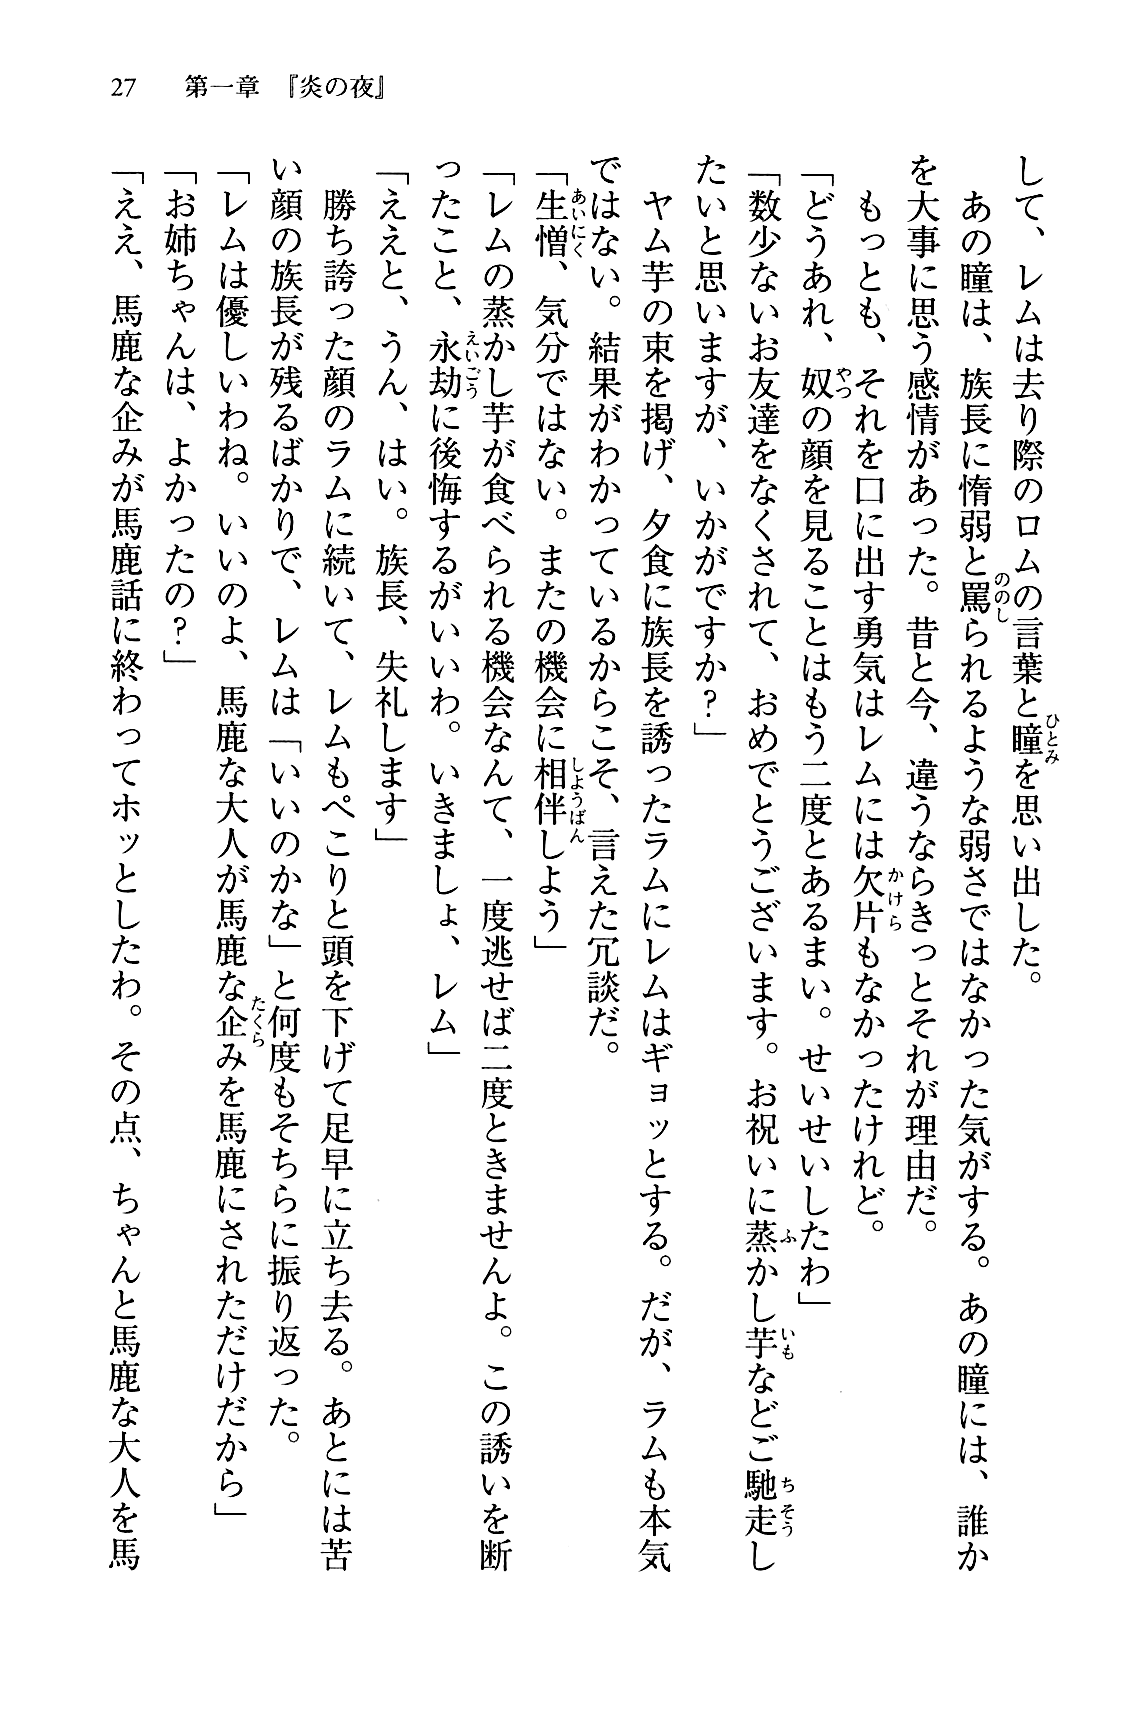 27　第一章　『炎の夜』
して、レムは去り際のロムの言葉と瞳を思い出した。
　あの瞳は、族長に惰弱と罵られるような弱さではなかった気がする。あの瞳には、誰か
を大事に思う感情があった。昔と今、違うならきっとそれが理由だ。
　もっとも、それを口に出す勇気はレムには欠片もなかったけれど。
「どうあれ、奴の顔を見ることはもう二度とあるまい。せいせいしたわ」
「数少ないお友達をなくされて、おめでとうございます。お祝いに蒸かし芋などご馳走し
たいと思いますが、いかがですか？」
　ヤム芋の束を掲げ、夕食に族長を誘ったラムにレムはギョッとする。だが、ラムも本気
ではない。結果がわかっているからこそ、言えた冗談だ。
「生憎、気分ではない。またの機会に相伴しよう」
「レムの蒸かし芋が食べられる機会なんて、一度逃せば二度ときませんよ。この誘いを断
ったこと、永劫に後悔するがいいわ。いきましょ、レム」
「ええと、うん、はい。族長、失礼します」
　勝ち誇った顔のラムに続いて、レムもぺこりと頭を下げて足早に立ち去る。あとには苦
い顔の族長が残るばかりで、レムは「いいのかな」と何度もそちらに振り返った。
「レムは優しいわね。いいのよ、馬鹿な大人が馬鹿な企みを馬鹿にされただけだから」
「お姉ちゃんは、よかったの？」
「ええ、馬鹿な企みが馬鹿話に終わってホッとしたわ。その点、ちゃんと馬鹿な大人を馬